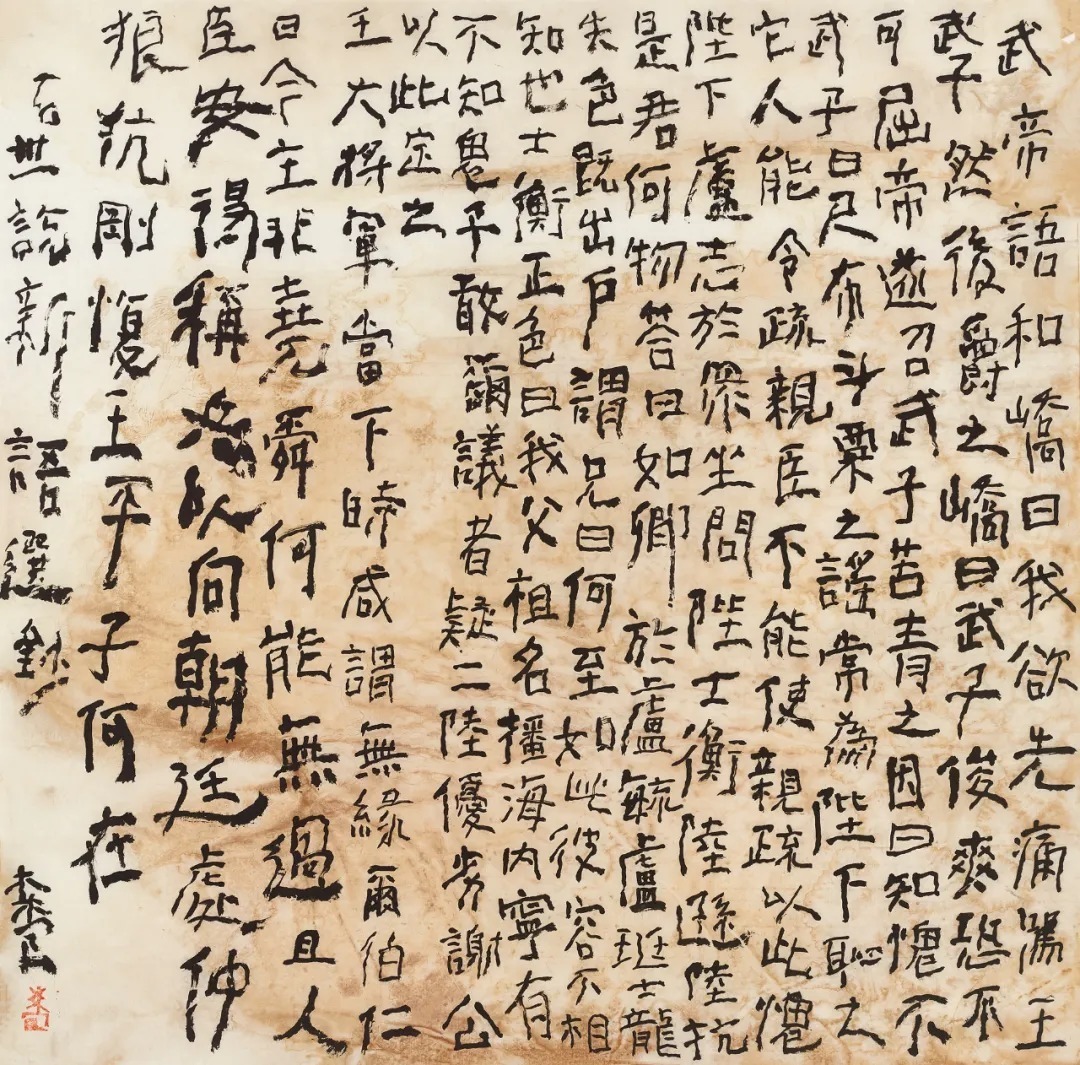 武帝語和嶠曰我欲先痛罵王
武子然後爵之嶠曰武子俊爽恐不
可屈帝遂召武子苦責之因曰知愧不
武子曰尺布斗粟之謠常為陛下恥之
它人能令疏親臣不能使親疏以此愧
陛下盧志於眾坐問陛士衡陸遜陸抗
是君何物答曰如卿於盧毓盧珽士龍
失色既出戶謂兄曰何至如此彼容不相
知也士衡正色曰我父祖名播海內寧有
不知鬼子敢爾議者疑二陸優劣謝公
以此定之
王大將軍當下時咸謂無緣爾伯仁
曰今主非堯舜何能無過且人
臣安得稱兵以向朝廷處仲
狼抗剛愎王平子何在
右世說新語選鈔